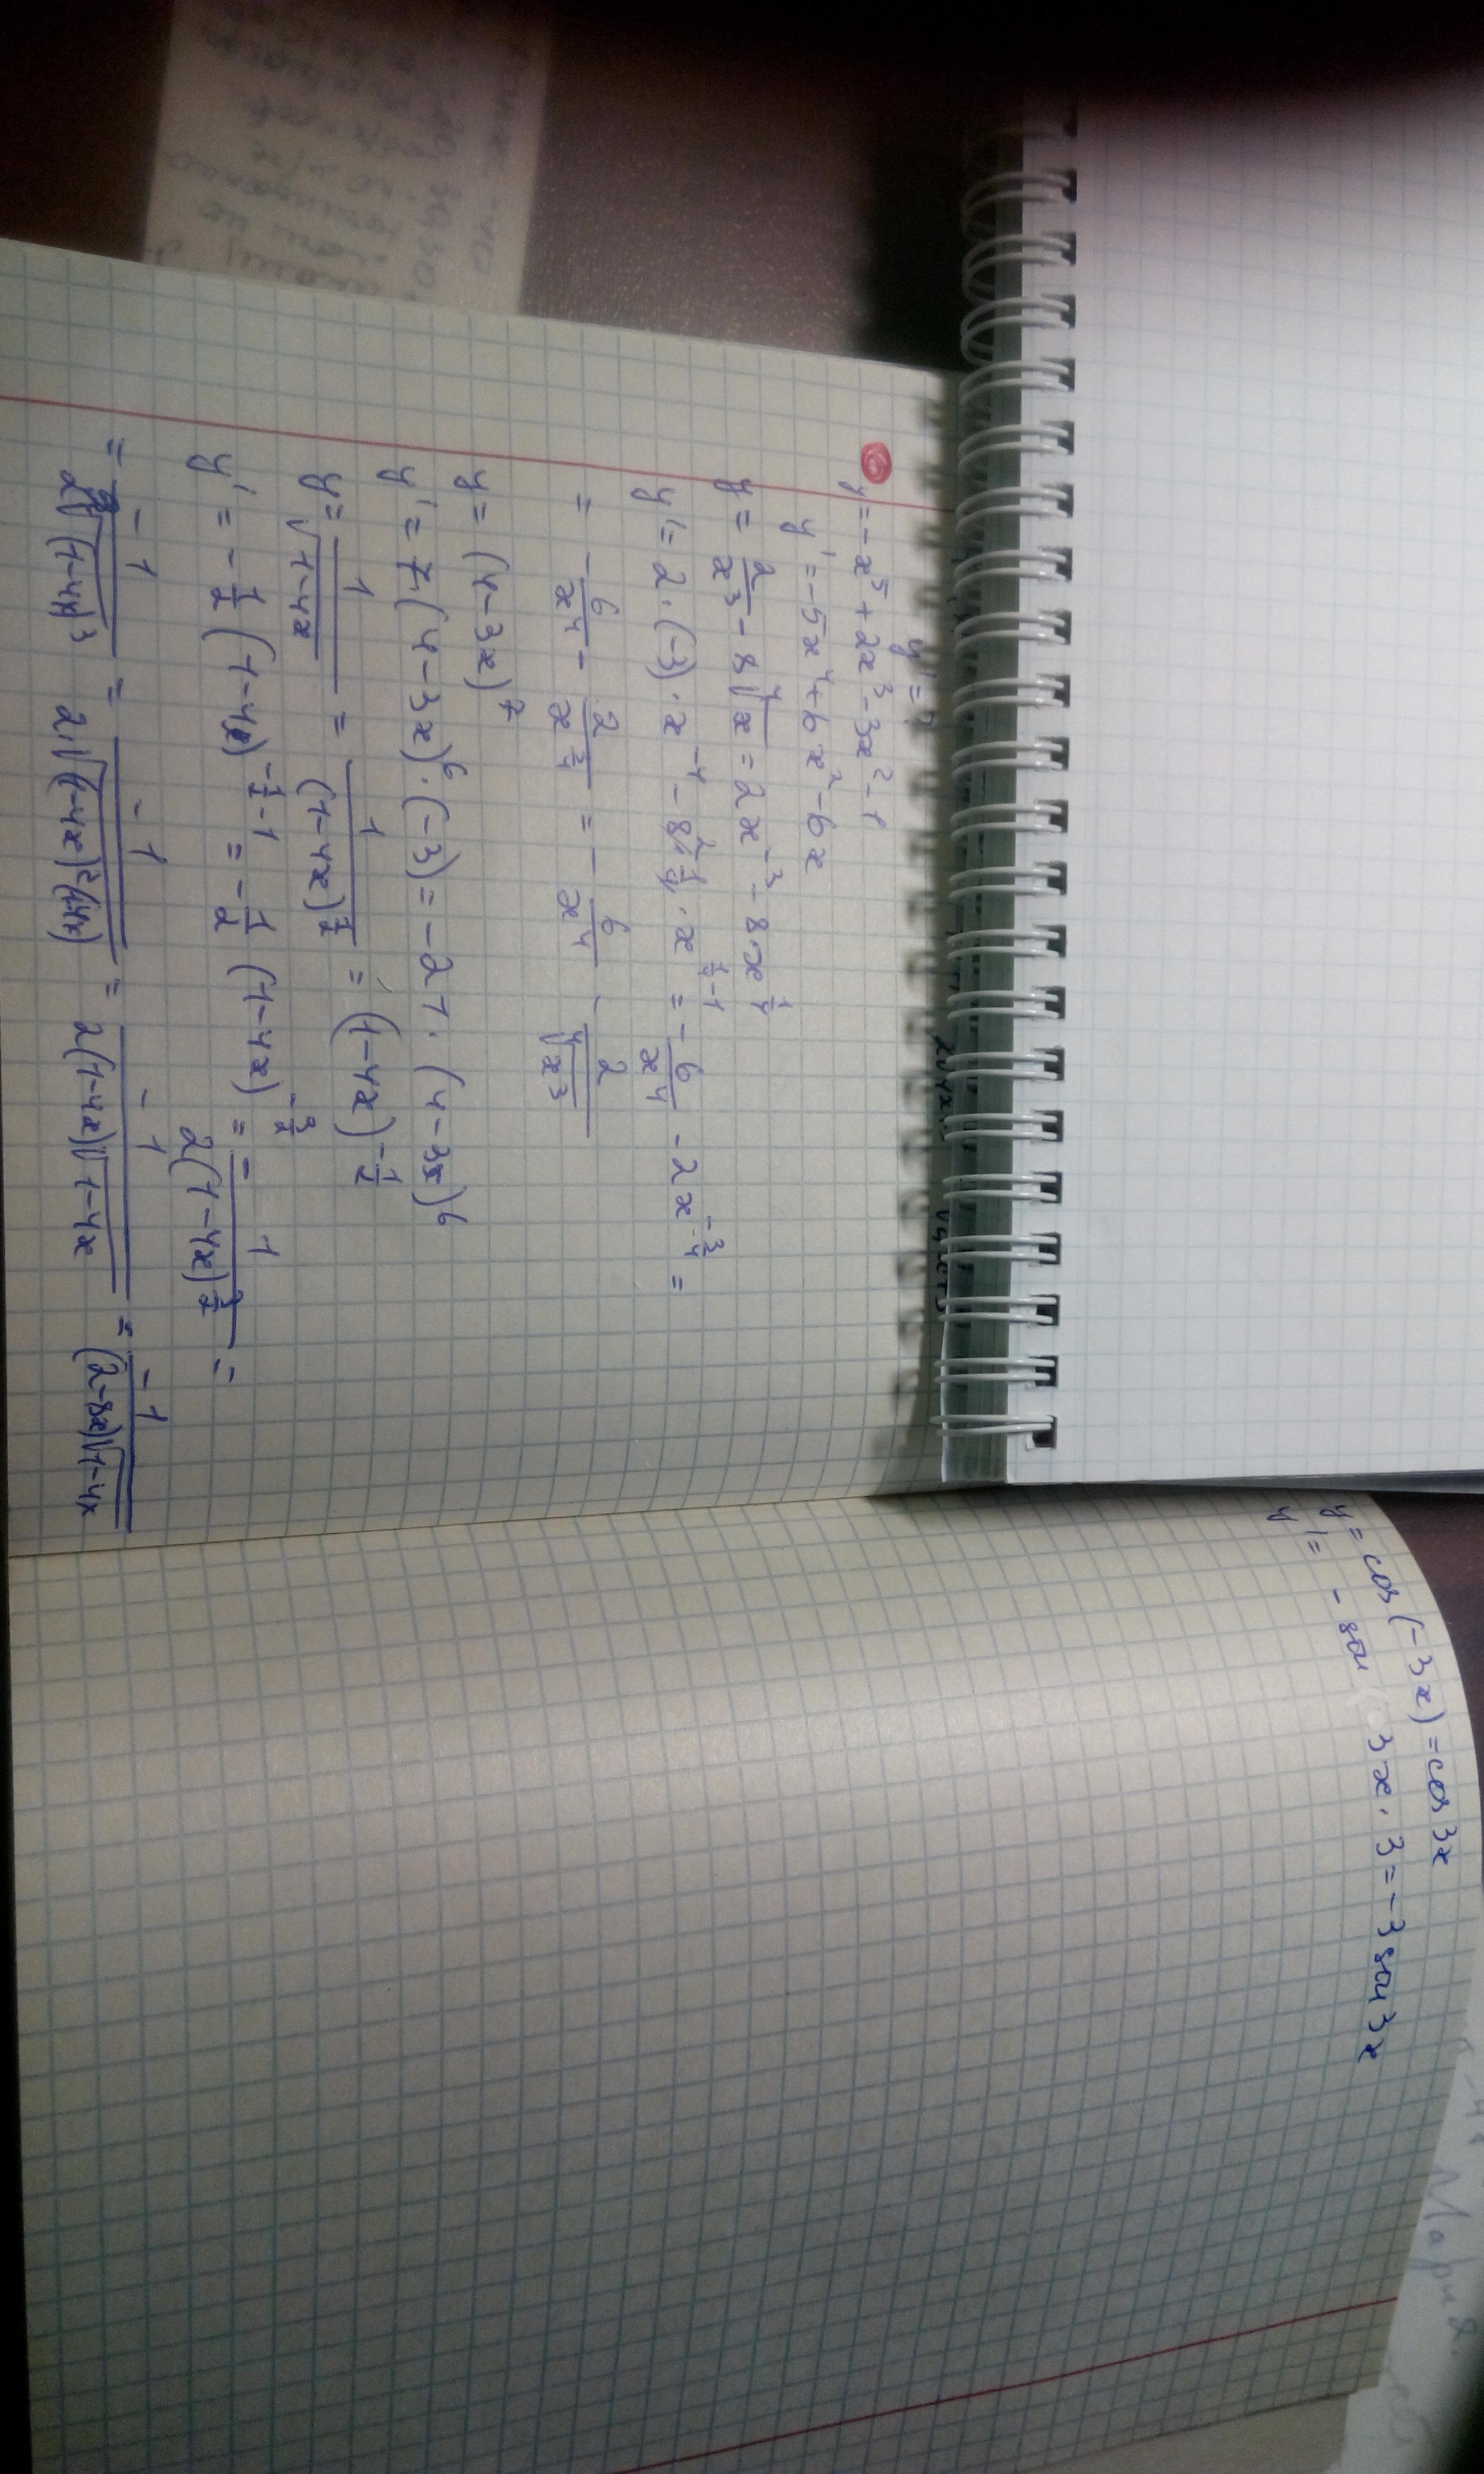 y' = ?
y = -x⁵ + 2x³ - 3x² - 1
y' = -5x⁴ + 6x² - 6x
y = 2/x³ - 8⁴√x = 2x⁻³ - 8x^(1/4)
y' = 2·(-3)·x⁻⁴ - 8·1/4·x^(1/4-1) = -6/x⁴ - 2x^(-3/4) =
= -6/x⁴ - 2/x^(3/4) = -6/x⁴ - 2/⁴√x³
y = (4-3x)⁷
y' = 7·(4-3x)⁶·(-3) = -21·(4-3x)⁶
y = 1/√(1-4x) = 1/(1-4x)^(1/2) = (1-4x)^(-1/2)
y' = -1/2 (1-4x)^(-1/2-1) = -1/2 (1-4x)^(-3/2) = -1/(2(1-4x)^(3/2)) =
= -1/(2√(1-4x)³) = -1/(2√((1-4x)²(1-4x))) = -1/(2(1-4x)√(1-4x)) = -1/((2-8x)√(1-4x))
y = cos(-3x) = cos3x
y' = - sin 3x · 3 = -3 sin3x